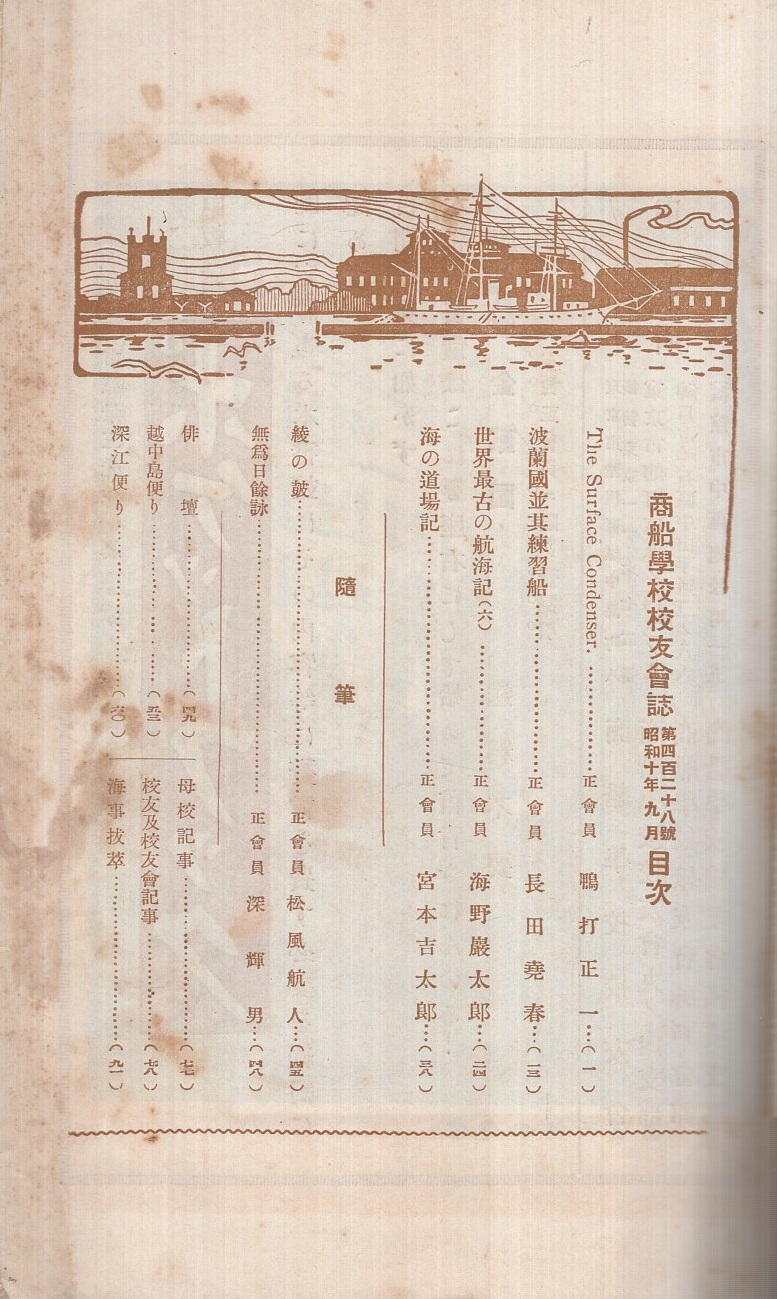 商船學校校友會誌 第四百二十八號 昭和十年九月 目次
The Surface Condenser. 正會員 鴨打正一…(一)
波蘭國並其練習船 正會員 長田堯春…(一三)
世界最古の航海記(六) 正會員 海野巖太郎…(二四)
海の道場記 正會員 宮本吉太郎…(三八)
隨筆
綾の皷 正會員 松風航人…(四五)
無爲日餘詠 正會員 深輝男…(四八)
俳壇…(四九)
越中島便り…(五三)
深江便り…(六〇)
母校記事…(七七)
校友及校友會記事…(七八)
海事拔萃…(九一)